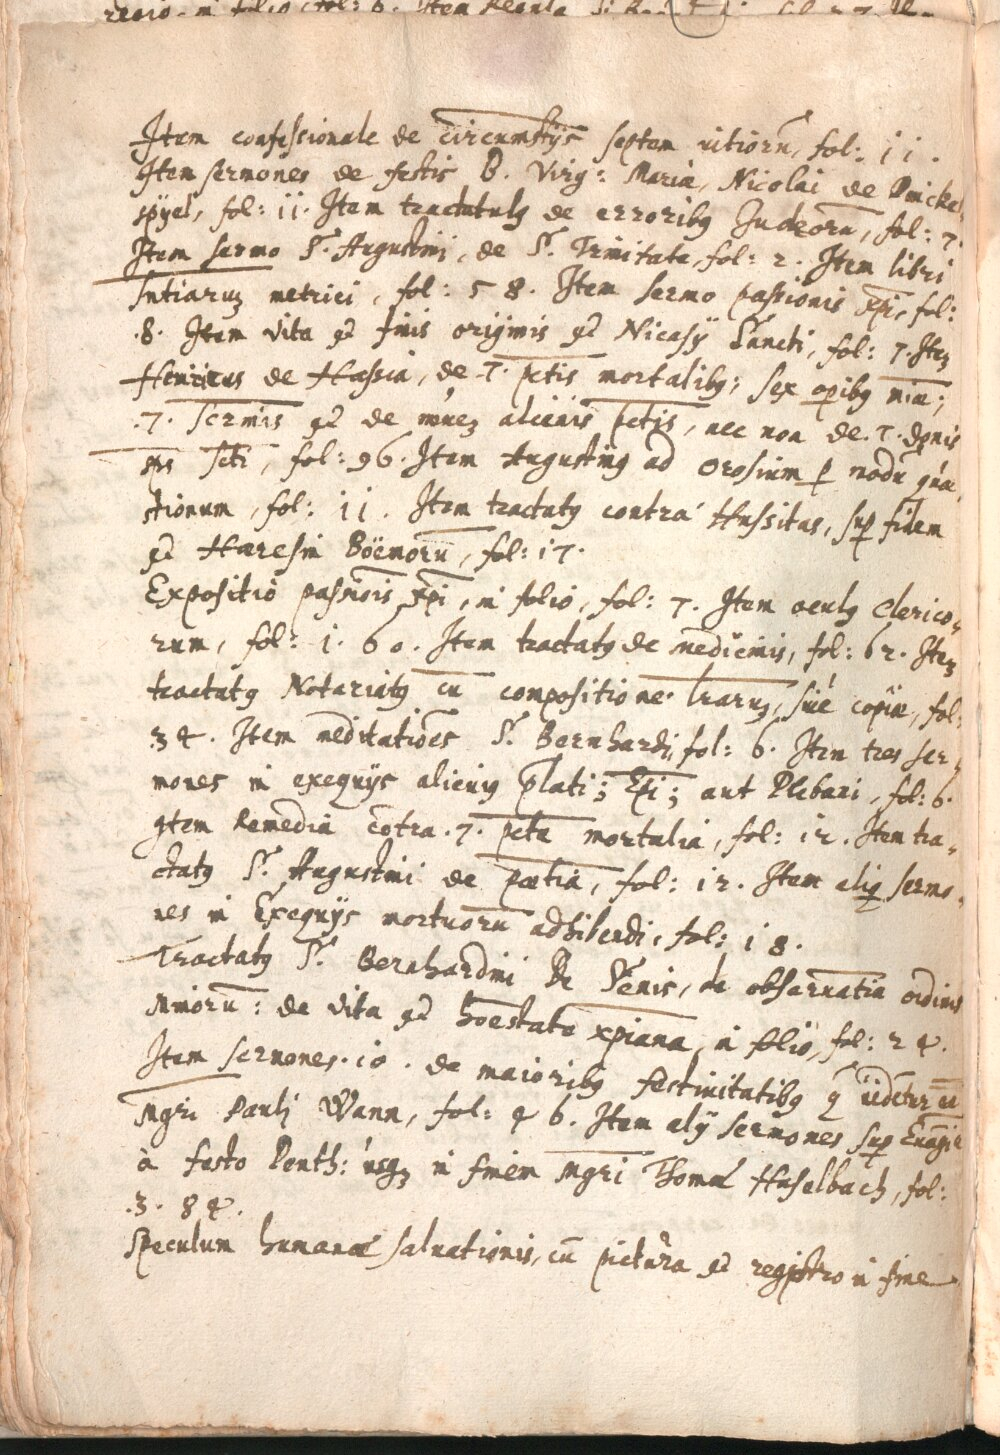 Item confessionale de circumstijs septem uitioru, fol: 11.
Item sermones de festis B. Virg: Mariæ, Nicolai de Dincke
spÿel, fol: 11. Item tractatulꝰ de erroribꝰ Judeoru, fol: 7.
Item sermo S. Augustini, de S. Trinitate, fol: 2. Item libri
Sntiaruꝫ metrici, fol: 58. Item sermo passionis xpi, fol:
.8. Item vita et finis originis et Nicasÿ Sancti, fol: 7. Iteꝫ
Henricus de Hassia, de .7. pctis mortalibꝰ; sex opibꝰ miæ;
.7. et de alienis pctis, nec non de .7. donis
sps scti, fol: 96. Item Augustinꝰ ad Orosium p modu quæ
stionum, fol: 11. Item tractatꝰ contra Hussitas, sup fidem
et Hæresin Böemoru, fol: 17.
Expositio passiois xpi, in folio, fol: 7. Item oculꝰ Clerico-
rum, fol: 1. 60. Item tractatꝰ de medicinis, fol: 62. Iteꝫ
tractatꝰ Notariatꝰ cu compositione lraruꝫ, siue copiæ, fol:
34. Item meditatioes S. Bernhardi, fol: 6. Item tres ser-
mones in exequijs alicuiꝰ plati; Epi; aut Plebani, fol: 6.
Item Remedia cotra .7. pcta mortalia, fol: 12. Item tra-
ctatꝰ S. Augustini de pœtia, fol: 12. Item aliq sermo-
nes in Exequijs mortuoru adhibendi, fol: 18.
Tractatꝰ S. Bernhardini De Senis, de obseruatia ordinis
Minoru: de vita et hoestate xpiana, in folio, fol: 24.
Item sermones .10. de maioribꝰ festiuitatibꝰ q uidetur ee
Mgri Pauli Wann, fol: 46. Item alÿ sermones sup Euagie
à festo Penth: usqꝫ in finem Mgri Thomæ Haselbach, fol:
.3. 84.
Speculum humanæ saluationis, cu pictura et registro in fine